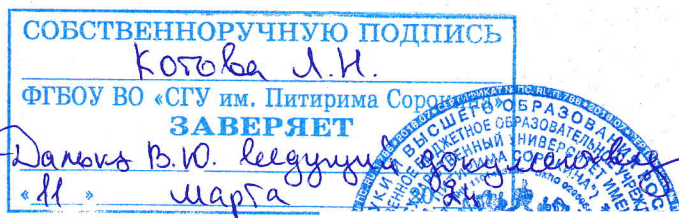 СОБСТВЕННОРУЧНУЮ ПОДПИСЬ
Котова Л.Н.
ФГБОУ ВО «СГУ им. Питирима Сорокина»
ЗАВЕРЯЕТ
В.Ю. ведущий документовед
«11» марта 20 24
ВЫСШЕГО ОБРАЗОВАНИЯ
БЮДЖЕТНОЕ ОБРАЗОВАТЕЛЬНОЕ